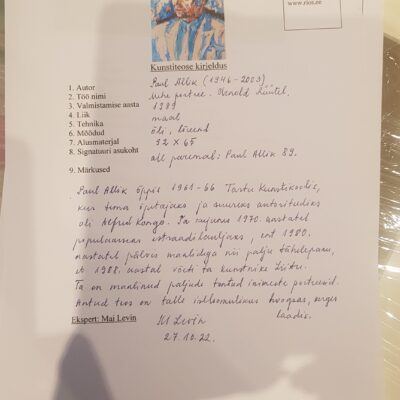 www.rios.ee
Kunstiteose kirjeldus
1. Autor Paul Allik (1946-2003)
2. Töö nimi Mehe portree. Arnold Rüütel.
3. Valmistamise aasta 1989
4. Liik maal
5. Tehnika õli, lõuend
6. Mõõdud 92 x 65
7. Alusmaterjal
8. Signatuuri asukoht all paremal: Paul Allik 89.
9. Märkused
Paul Allik õppis 1961-66 Tartu Kunstikoolis,
kus tema õpetajaks ja suureks autoriteediks
oli Alfred Kongo. Ta kujunes 1970. aastatel
populaarseks estraadilauljaks, ent 1980.
aastatel pälvis maalidega nii palju tähelepanu,
et 1988. aastal võeti ta Kunstnike Liitu.
Ta on maalinud paljude tuntud inimeste portreesid.
Antud teos on talle iseloomulikus hoogsas, kerges
laadis.
Ekspert: Mai Levin M Levin
27.10.22.